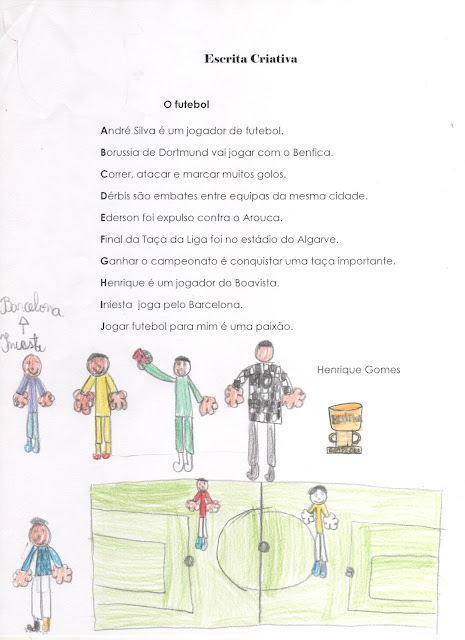 Escrita Criativa
O futebol
André Silva é um jogador de futebol.
Borussia de Dortmund vai jogar com o Benfica.
Correr, atacar e marcar muitos golos.
Dérbis são embates entre equipas da mesma cidade.
Ederson foi expulso contra o Arouca.
Final da Taça da Liga foi no estádio do Algarve.
Ganhar o campeonato é conquistar uma taça importante.
Henrique é um jogador do Boavista.
Iniesta joga pelo Barcelona.
Jogar futebol para mim é uma paixão.
Henrique Gomes
Barcelona
Iniesta